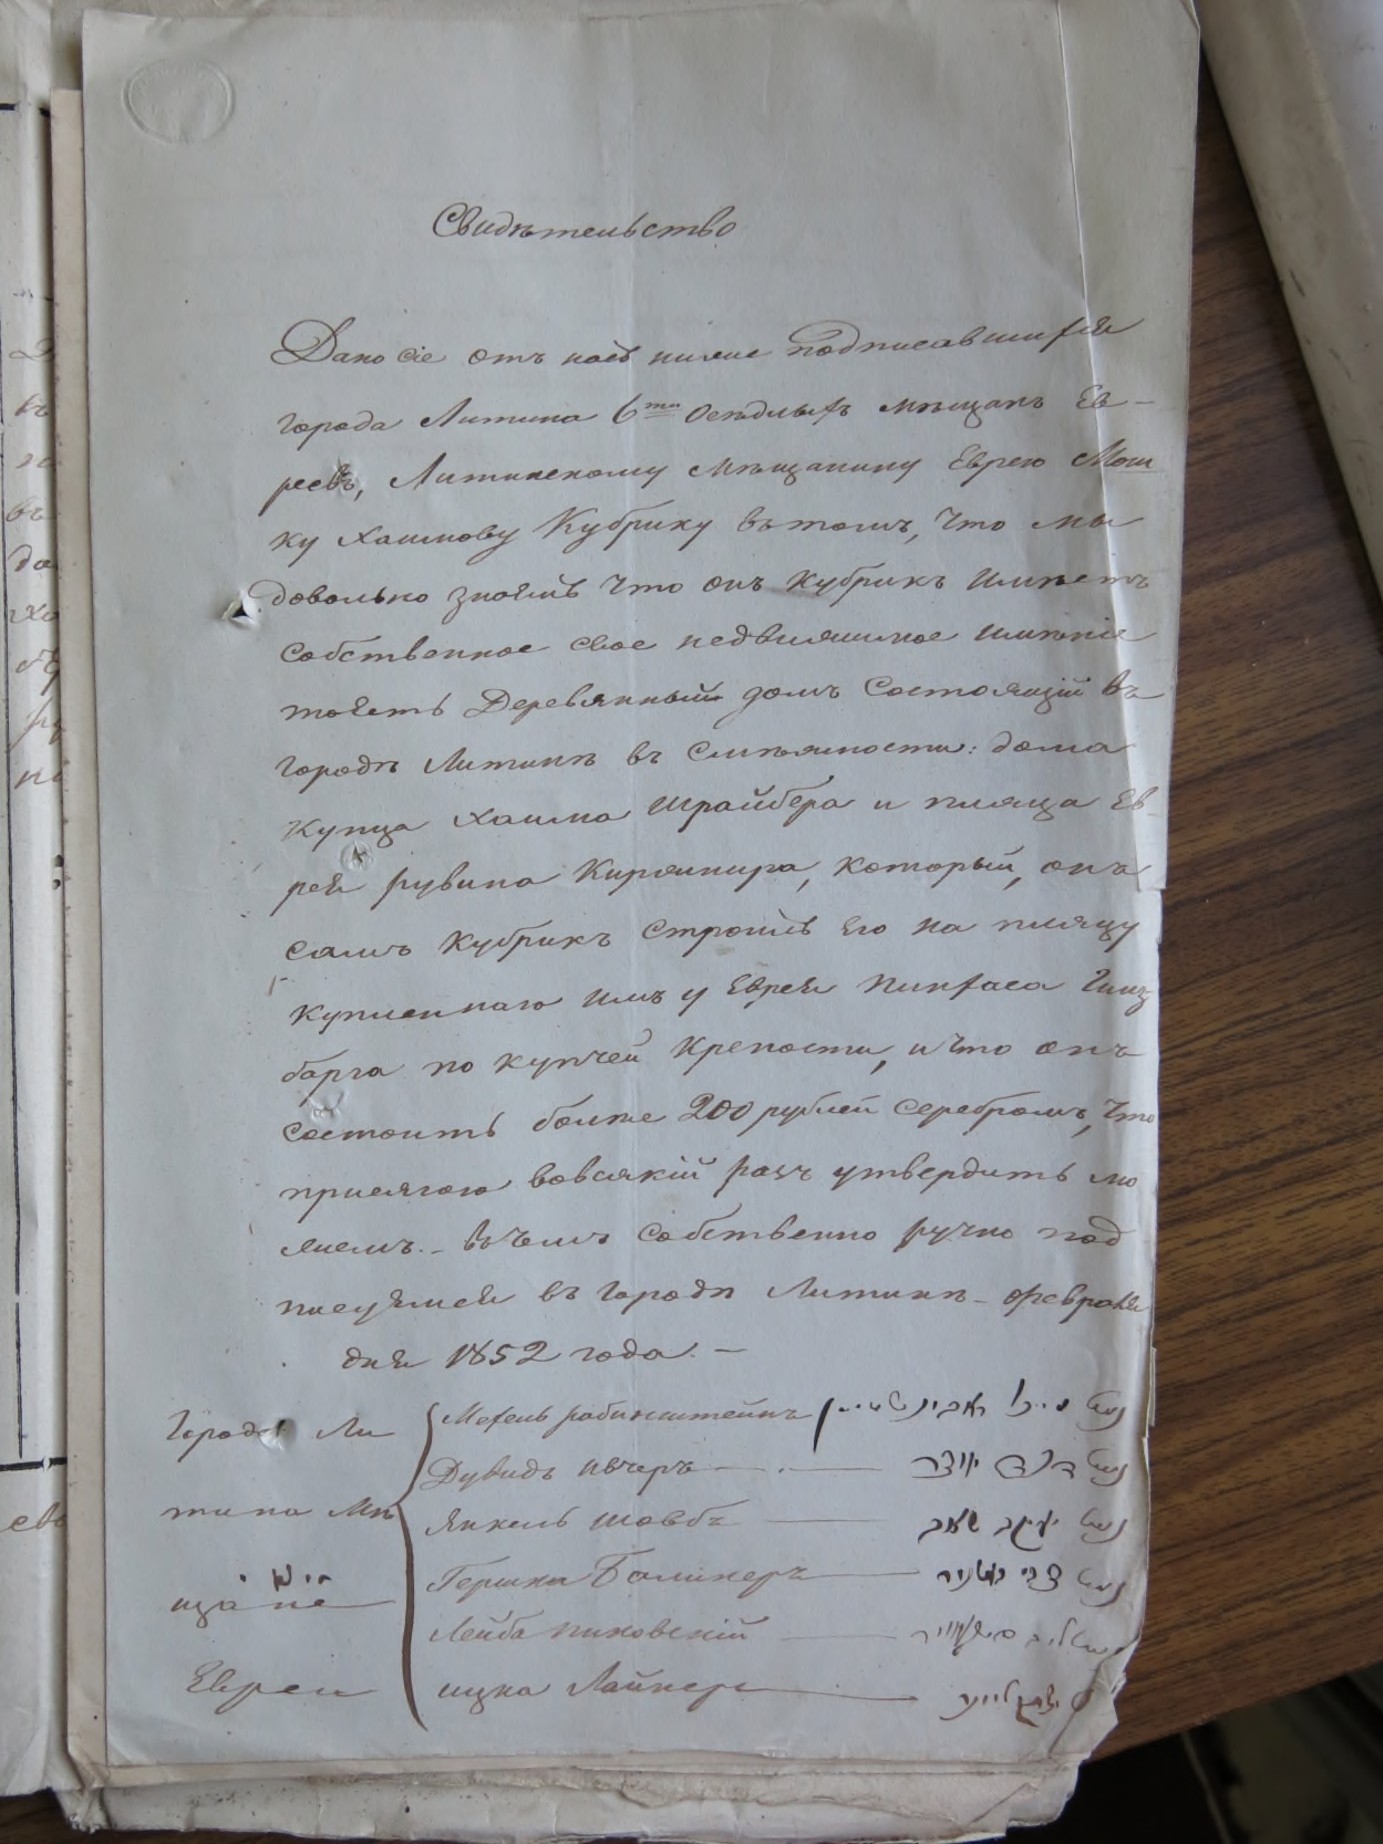 Свидѣтельство
Дано сіе отъ насъ ниже подписавшихся
города Литина 6ти Осѣдлыхъ мѣщанъ Ев-
реевъ, Литинскому Мѣщанину Еврею Мош
ку Хаимову Кубрику въ томъ, что мы
довольно знаемъ что онъ Кубрикъ имѣетъ
собственное свое недвижимое имѣніе
тоесть Деревянный домъ Состоящій въ
городѣ Литинѣ въ Смѣжности: дома
Купца Хаима Шрайбера и пляца Ев
рея Рувина Киржнира, который, онъ
самъ Кубрикъ строилъ его на пляцу
купленнаго имъ у Еврея Пинхаса Гинз
барга по купчей Крепости, и что онъ
состоитъ болѣе 200 рублей серебромъ, что
присягою вовсякій разъ утвердить мо
жемъ. - въ чемъ собственно ручно под
писуемся въ городѣ Литинѣ - февраля
дня 1852 года. -
Города Ли
тина Мѣ
щане
Евреи
Мехель Рабинштейнъ נאום מיכל ראבינשטיין
Дувидъ Ивчеръ דוד
Янкель Шовбъ נאום יעקב שאוב
Гершко Балинеръ נאום הרש
Лейба Пиковскій
ицка Лайнеръ יצחק ליינר